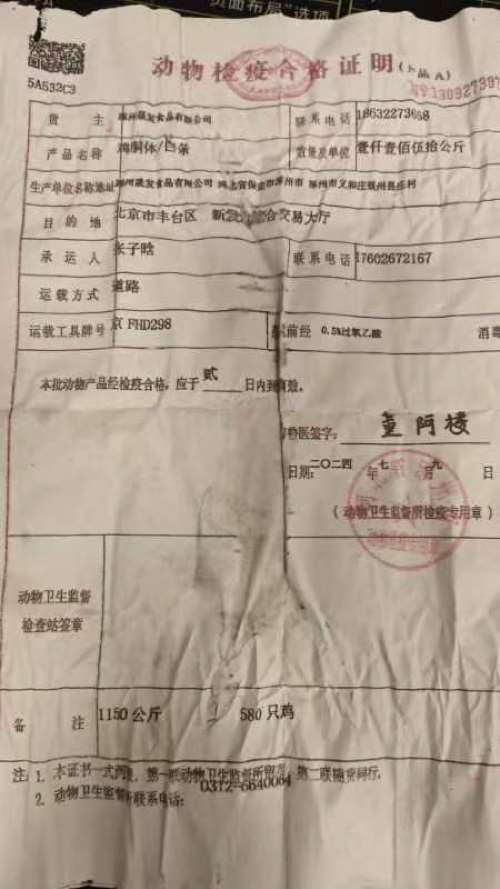 页面布局"选项
动物检疫合格证明(产品A)
5A532C3
货 主 涿州晟发食品有限公司 联系电话 18632273658
产品名称 鸡胴体/白条 数量及单位 壹仟壹佰伍拾公斤
生产单位名称地址 涿州晟发食品有限公司 河北省保定市涿州市
目的地 北京市丰台区 交易大厅
承运人 张子晗 联系电话 17602672167
运载方式 道路
运载工具牌号 京FHD298 前经 0.5%过氧乙酸 消毒
本批动物产品经检疫合格,应于 贰 日内到 有效。
兽医签字:
日期:二〇二四 年 七 月 九 日
(动物卫生监督所检疫专用章)
动物卫生监督
检查站签章
备 注 1150公斤 580只鸡
注:1. 本证书一式两 ,第一联动物卫生监督所留存,第二联随货同行。
2. 动物卫生监督所联系电话:0312-6640064